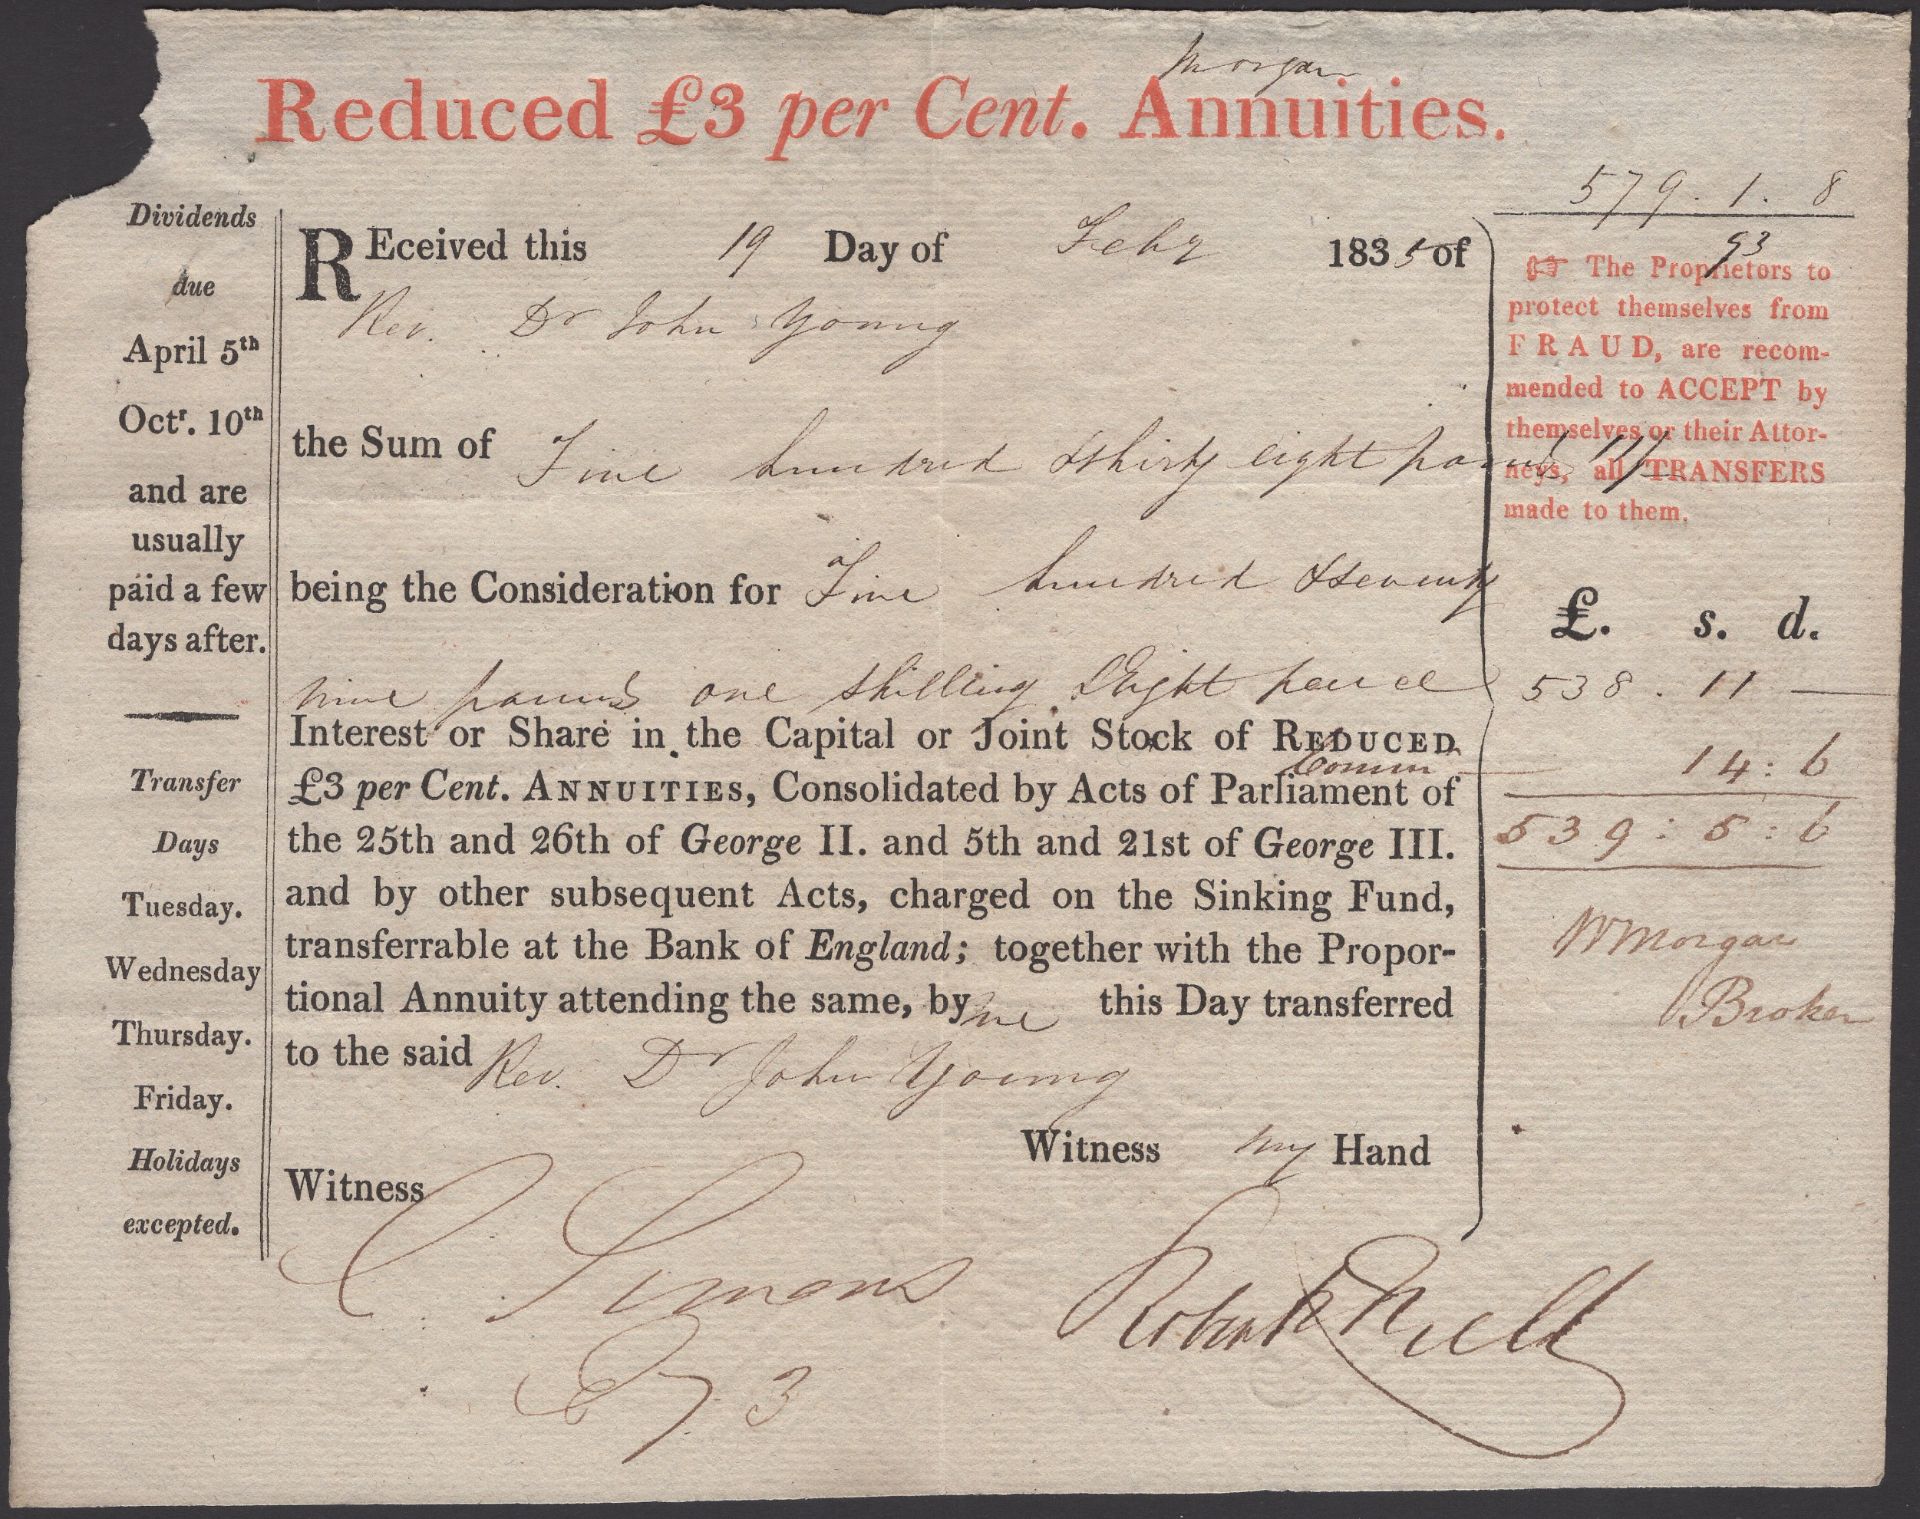 Morgan
Reduced £3 per Cent. Annuities.
Dividends
due
April 5th
Octr. 10th
and are
usually
paid a few
days after.
Transfer
Days
Tuesday.
Wednesday
Thursday.
Friday.
Holidays
excepted.
REceived this 19 Day of Feby 1835 of
Rev. Dr John Young
the Sum of Five hundred & thirty eight pounds 11/
being the Consideration for Five hundred & seventy
nine pounds one shilling & Eight pence
Interest or Share in the Capital or Joint Stock of REDUCED
£3 per Cent. ANNUITIES, Consolidated by Acts of Parliament of
the 25th and 26th of George II. and 5th and 21st of George III.
and by other subsequent Acts, charged on the Sinking Fund,
transferrable at the Bank of England; together with the Propor-
tional Annuity attending the same, by me this Day transferred
to the said Rev. Dr John Young
Witness my Hand
Witness
C Simons
3
579.1.8
93
☞ The Proprietors to
protect themselves from
FRAUD, are recom-
mended to ACCEPT by
themselves or their Attor-
neys, all TRANSFERS
made to them.
£. s. d.
538.11 —
Comm — 14:6
539:5:6
W Morgan
Broker